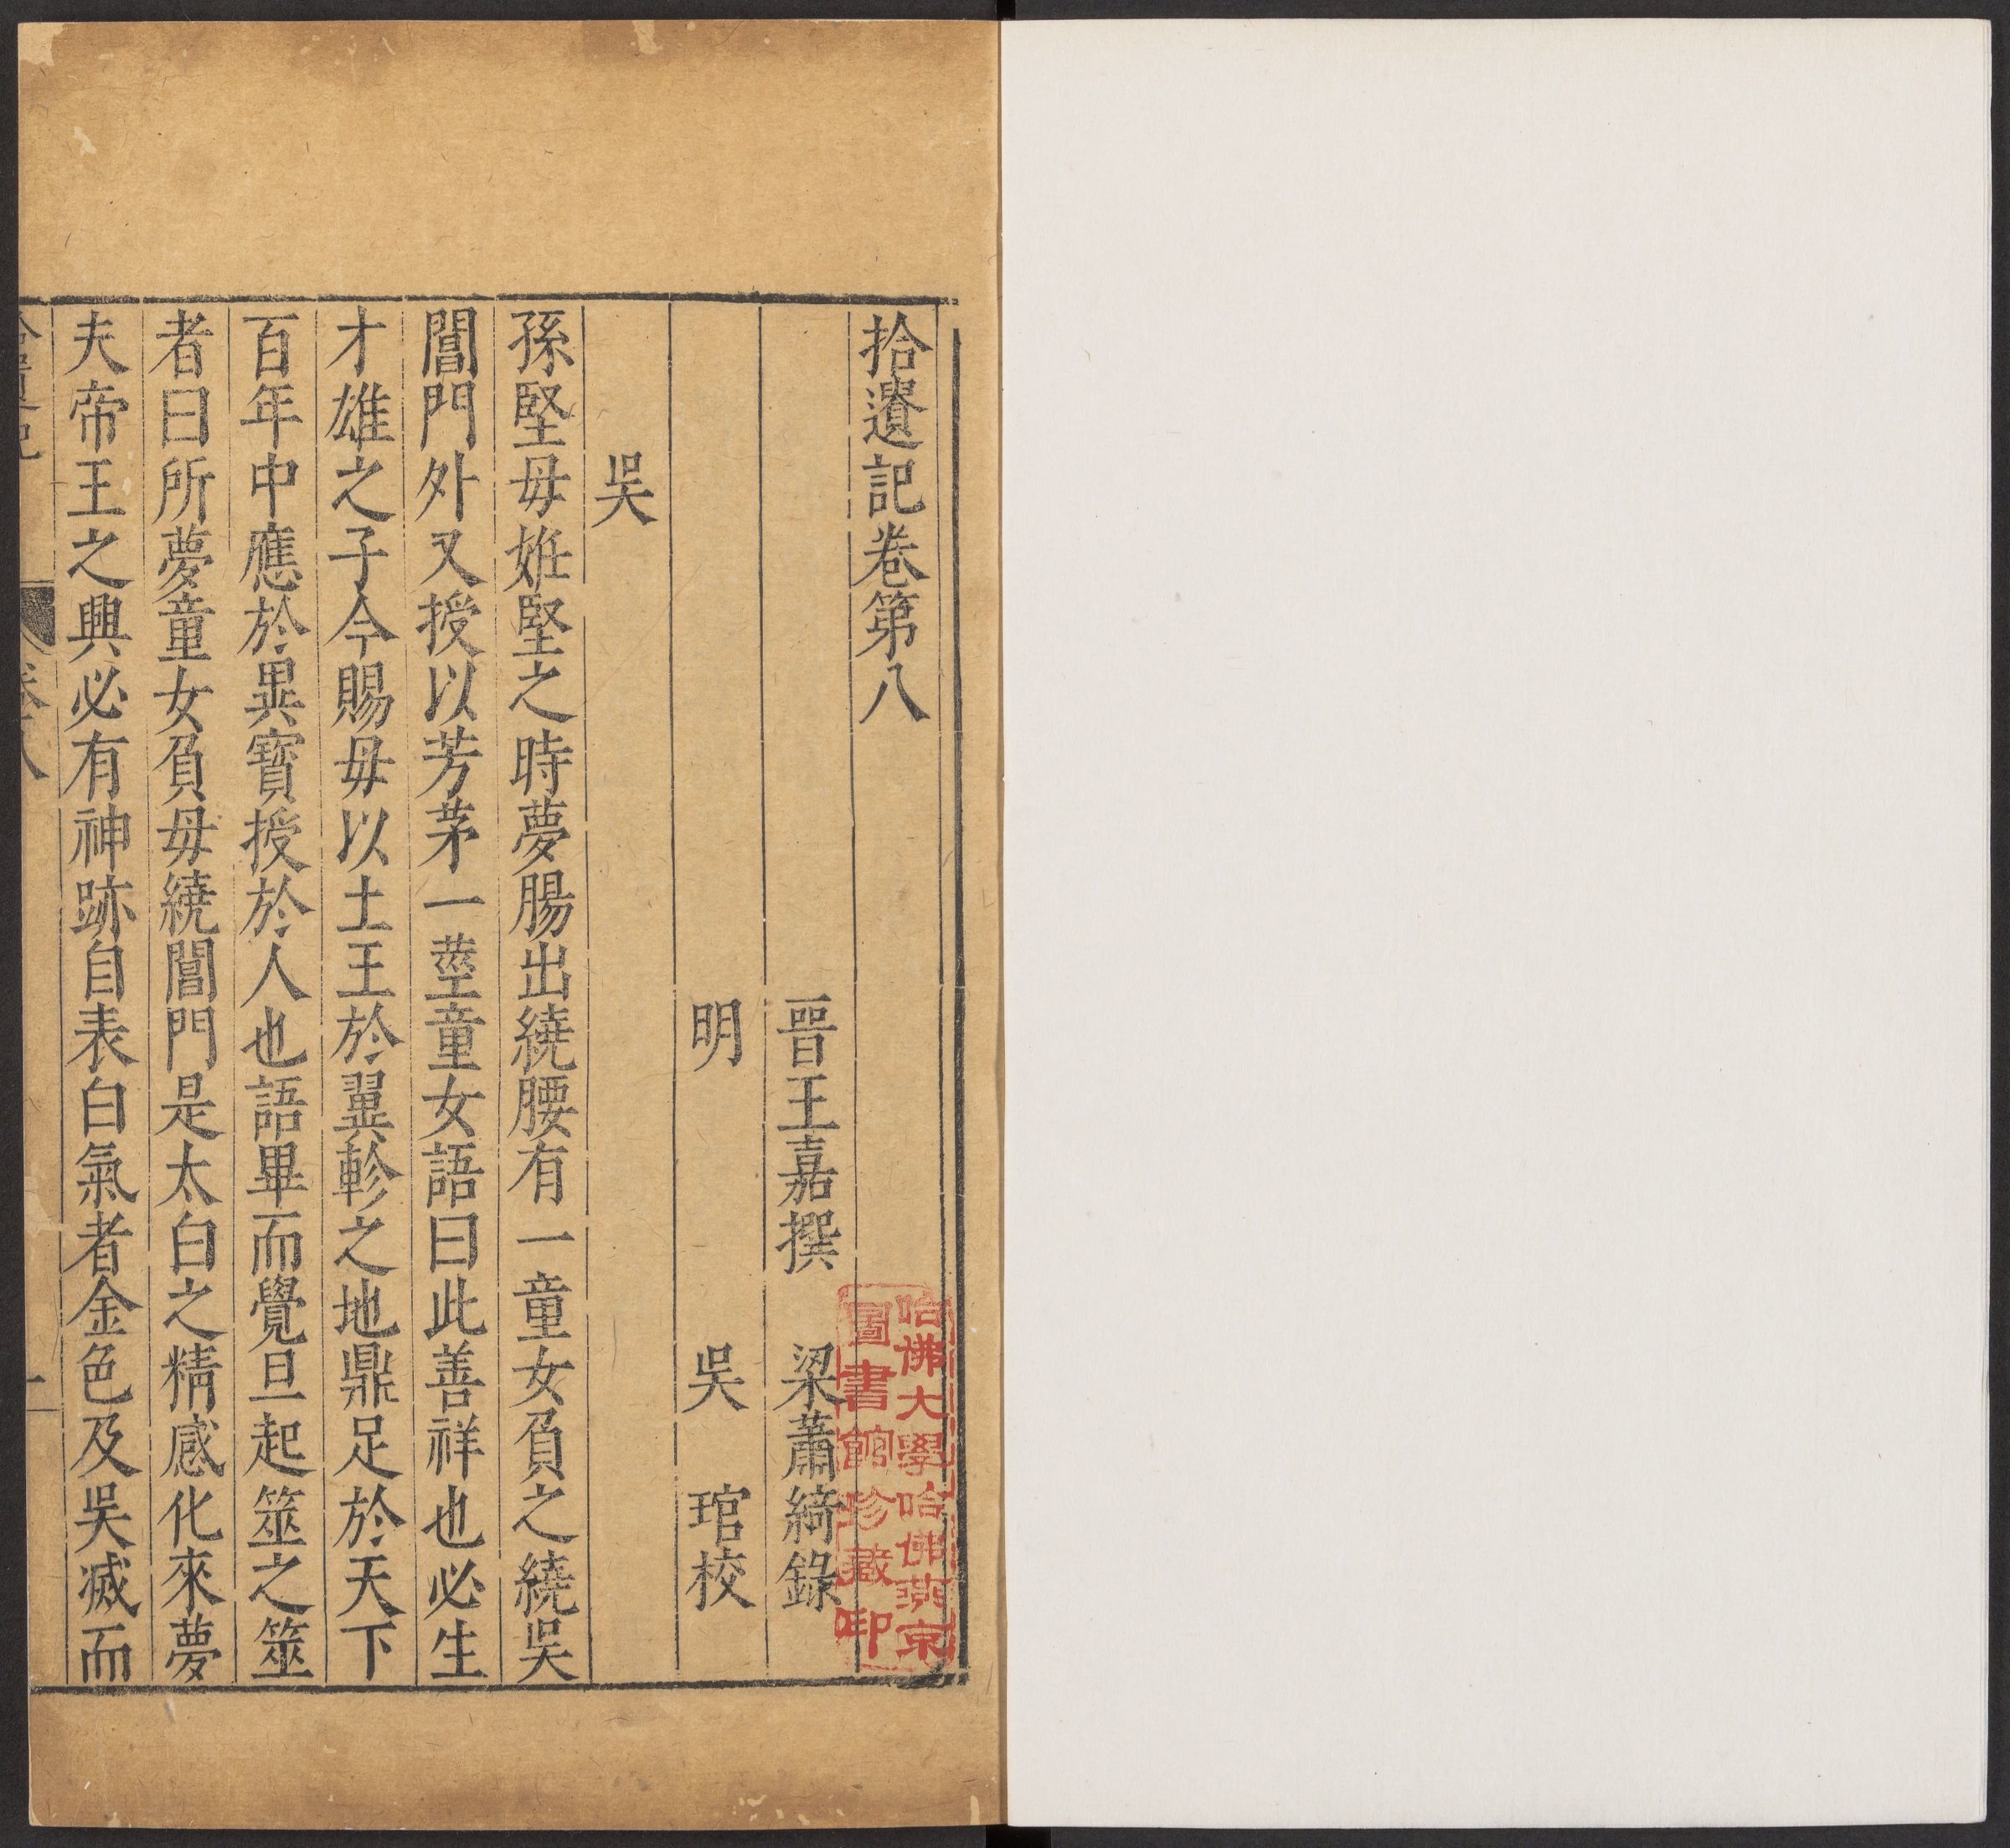 拾遺記卷第八
晉王嘉撰　梁蕭綺錄
明　吳　琯校
吳
孫堅毋姙堅之時夢腸出繞腰有一童女負之繞吳
閶門外又授以芳茅一莖童女語曰此善祥也必生
才雄之子今賜毋以土王於翼軫之地鼎足於天下
百年中應於異寶授於人也語畢而覺旦起筮之筮
者曰所夢童女負毋繞閶門是太白之精感化來夢
夫帝王之興必有神跡自表白氣者金色及吳滅而
拾遺記 卷八 一
哈佛大學哈佛燕京
圖書館珍藏印